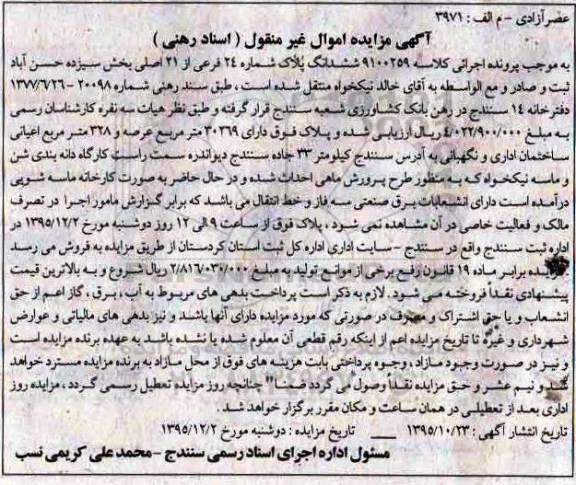 عضر آزادی - م الف : ۳۹۷۱
آگهی مزایده اموال غیر منقول ( اسناد رهنی )
به موجب پرونده اجرائی کلاسه ۹۱۰۰۲۵۹ ششدانگ پلاک شماره ۲۴ فرعی از ۲۱ اصلی بخش سیزده حسن آباد
ثبت و صادر و مع الواسطه به آقای خالد نیکخواه منتقل شده است ، طبق سند رهنی شماره ۲۰۰۹۸ - ۱۳۷۷/۶/۲۶
دفترخانه ۱۴ سنندج در رهن بانک کشاورزی شعبه سنندج قرار گرفته و طبق نظر هیات سه نفره کارشناسان رسمی
به مبلغ ۴/۰۲۲/۹۰۰/۰۰۰ ریال ارزیابی شده و پلاک فوق دارای ۳۰۳۶۹ متر مربع عرصه و ۳۲۸ متر مربع اعیانی
ساختمان اداری و نگهبانی به آدرس سنندج کیلومتر ۳۳ جاده سنندج دیواندره سمت راست کارگاه دانه بندی شن
و ماسه نیکخواه که به منظور طرح پرورش ماهی احداث شده و در حال حاضر به صورت کارخانه ماسه شویی
درآمده است دارای انشعابات برق صنعتی سه فاز و خط انتقال می باشد که برابر گزارش مامور اجرا در تصرف
مالک و فعالیت خاصی در آن مشاهده نمی شود ، پلاک فوق از ساعت ۹ الی ۱۲ روز دوشنبه مورخ ۱۳۹۵/۱۲/۲ در
اداره ثبت سنندج واقع در سنندج - سایت اداری اداره کل ثبت استان کردستان از طریق مزایده به فروش می رسد
مزایده برابر ماده ۱۹ قانون رفع برخی از موانع تولید به مبلغ ۲/۸۱۶/۰۳۰/۰۰۰ ریال شروع و به بالاترین قیمت
پیشنهادی نقداً فروخته می شود . لازم به ذکر است پرداخت بدهی های مربوط به آب ، برق ، گاز اعم از حق
انشعاب و یا حق اشتراک و مصرف در صورتی که مورد مزایده دارای آنها باشد و نیز بدهی های مالیاتی و عوارض
شهرداری و غیره تا تاریخ مزایده اعم از اینکه رقم قطعی آن معلوم شده یا نشده باشد به عهده برنده مزایده است
و نیز در صورت وجود مازاد ، وجوه پرداختی بابت هزینه های فوق از محل مازاد به برنده مزایده مسترد خواهد
شد و نیم عشر و حق مزایده نقداً وصول می گردد ضمنا" چنانچه روز مزایده تعطیل رسمی گردد ، مزایده روز
اداری بعد از تعطیلی در همان ساعت و مکان مقرر برگزار خواهد شد .
تاریخ انتشار آگهی : ۱۳۹۵/۱۰/۲۳ ___ تاریخ مزایده : دوشنبه مورخ ۱۳۹۵/۱۲/۲
مسئول اداره اجرای اسناد رسمی سنندج - محمد علی کریمی نسب